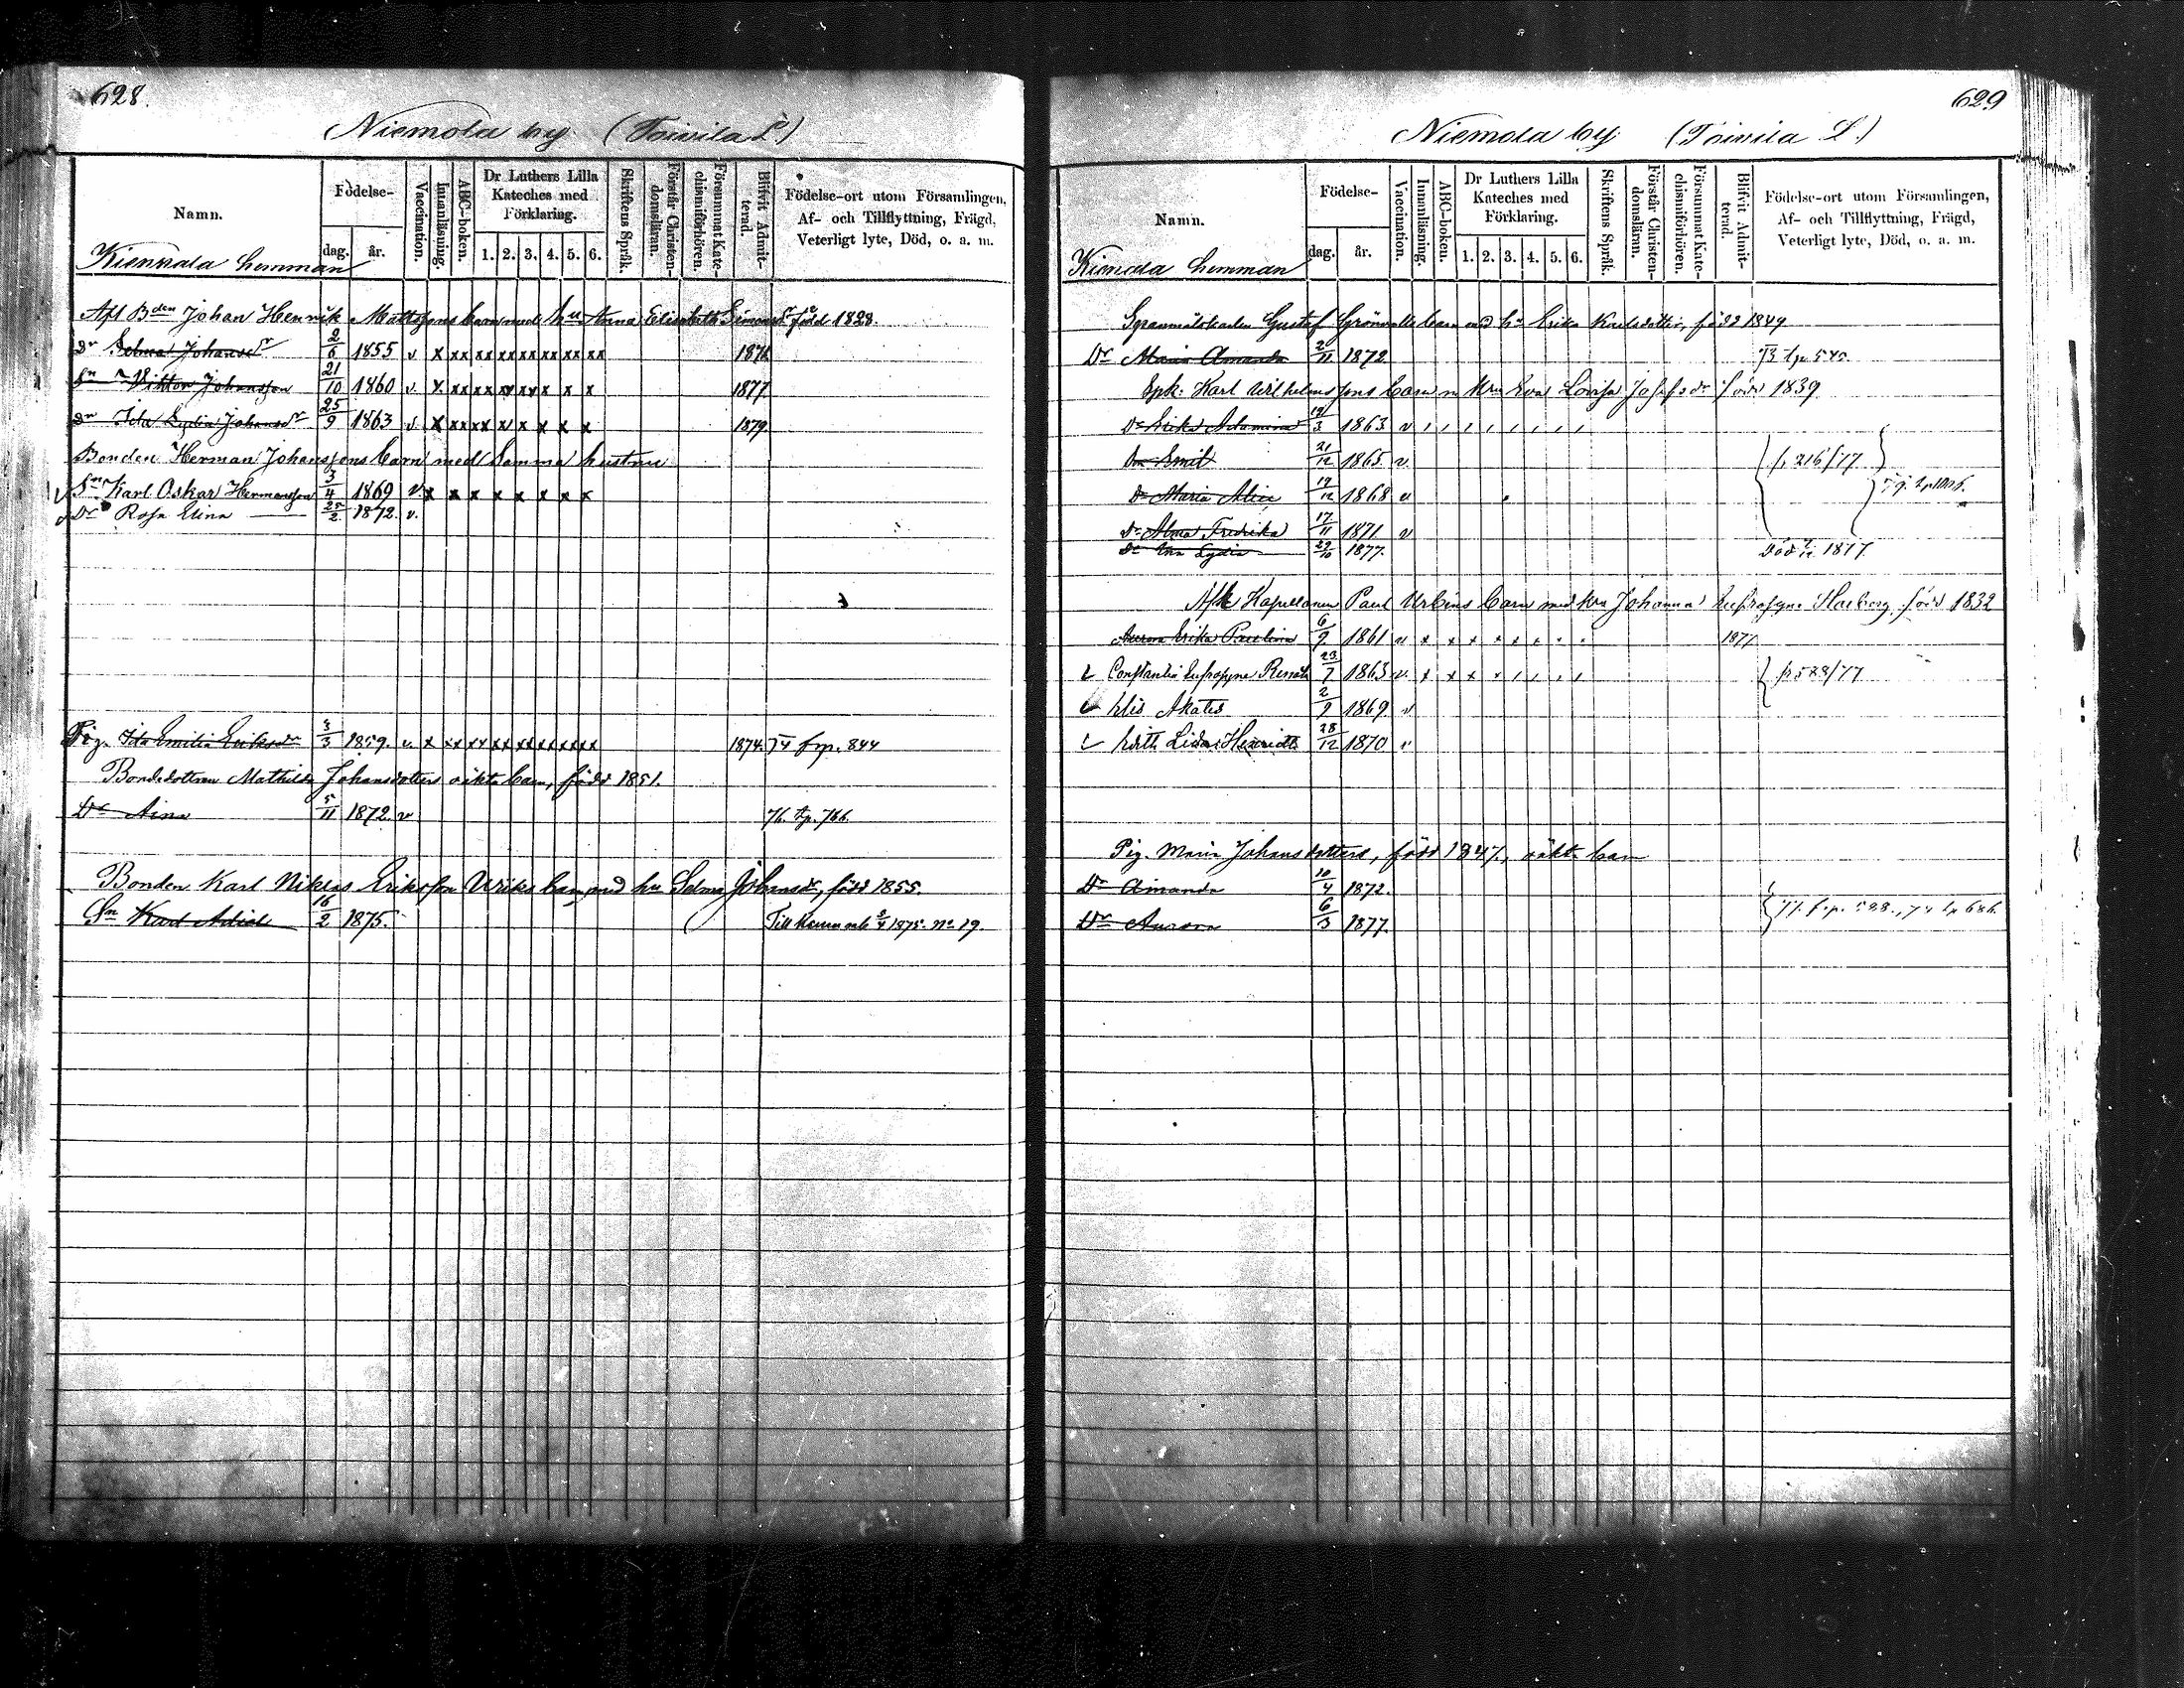 628.
Niemola by (Toivila L)
Namn.
Födelse-
dag.
år.
Vaccination.
Innanläsning.
ABC-boken.
Dr Luthers Lilla Kateches med Förklaring.
1. 2. 3. 4. 5. 6.
Skriftens Språk.
Förstår Christendomsläran.
Försummat Katechismiförhören.
Blifvit Admitterad.
Födelse-ort utom Församlingen,
Af- och Tillflyttning, Frägd,
Veterligt lyte, Död, o. a. m.
hemman
Afl Bden Johan Henrik Mattssons barn med hu Anna Elisabeth Simonsdr född 1828.
Dr Selma Johansdr 2/6 1855 v x xx xx xx xx xx xx xx 1871
Sn Viktor Johansson 21/10 1860 v. x xx xx xx x x x 1877.
Dr Ida Lydia Johansdr 25/9 1863 v x xx xx x x x x x 1879
Bonden Herman Johanssons barn med samma hustru
v Sn Karl Oskar Hermansson 3/4 1869 v x x x x x x x x
v Dr Rosa Elina 25/2 1872. v.
Pig. Ida Emilia Eriksdr 3/3 1859. v. x xx xx xx xx xx xx xx 1874. 74 frp. 844
Bondedottren Mathilda Johansdotters oäkta barn, född 1851.
Dr Aina 5/11 1872. v 76. tp. 766.
Bonden Karl Niklas Eriksson Uriks barn med hu Selma Johansdr, född 1855.
Sn Karl 16/2 1875. Till 1875. No 19.
629
Niemola by (Toivila L.)
Namn.
Födelse-
dag.
år.
Vaccination.
Innanläsning.
ABC-boken.
Dr Luthers Lilla Kateches med Förklaring.
1. 2. 3. 4. 5. 6.
Skriftens Språk.
Förstår Christendomslärn.
Försummat Katechismiförhören.
Blifvit Admitterad.
Födelse-ort utom Församlingen,
Af- och Tillflyttning, Frägd,
Veterligt lyte, Död, o. a. m.
hemman
Gustaf Grönvalls barn med hu Erika Karlsdotter, född 1849
Dr Maria Amanda 2/11 1872. 73 tp. 545.
Spk. Karl Wilhelmssons barn m hu Eva Lovisa Josefsdr född 1839
Dr Erika Adamina 19/3 1863. v
Sn Emil 21/12 1865 v. p. 216/77
Dr Maria Alice 19/12 1868 v
Dr Alma Fredrika 17/11 1871 v
Dr Lydia 29/10 1877. Död 1877.
Kapellanen Paul Urbins barn med hu Johanna född 1832
Aurora Erika Paulina 6/9 1861 v x x x x x 1877
Constantia Eufrosyne Renata 23/7 1863 v. x x x p 528/77
Elis Akates 2/9 1869 v
Edith Lidia Henriette 28/12 1870 v
Pig. Maria Johansdotters, född 1847, oäkta barn
Dr Amanda 10/4 1872.
Dr Aurora 6/3 1877. 77. frp. 528., 78 tp 686.